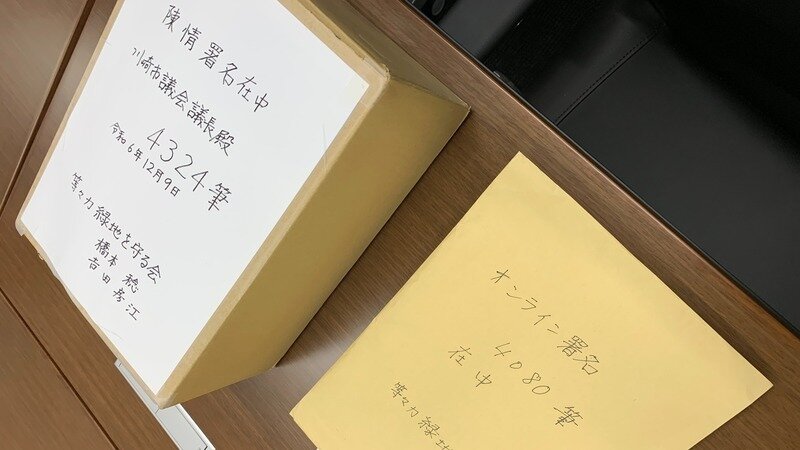 陳情署名在中
川崎市議会議長殿
4324筆
令和6年12月9日
等々力緑地を守る会
橋本 稔
吉田 房江
オンライン署名
4080筆
在中
等々力緑地